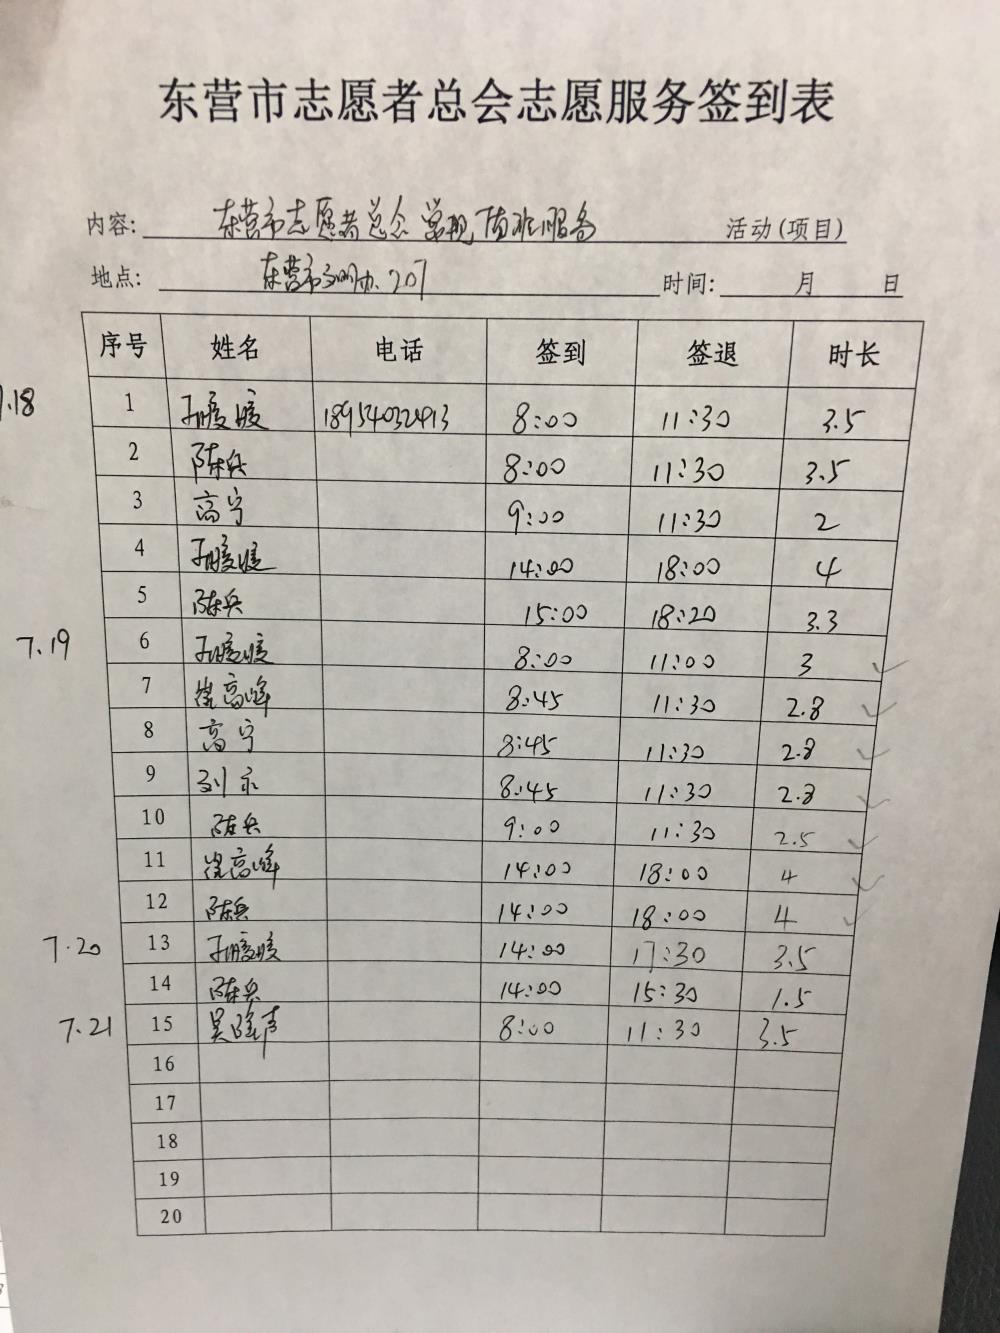 东营市志愿者总会志愿服务签到表
内容: 东营市志愿者总会常规值班服务 活动(项目)
地点: 东营市文明办 207 时间: 月 日
序号 姓名 电话 签到 签退 时长
7.18 1 孙媛媛 18954032413 8:00 11:30 3.5
2 陈兵 8:00 11:30 3.5
3 高宁 9:00 11:30 2
4 孙媛媛 14:00 18:00 4
5 陈兵 15:00 18:20 3.3
7.19 6 孙媛媛 8:00 11:00 3
7 崔高峰 8:45 11:30 2.8
8 高宁 8:45 11:30 2.8
9 刘永 8:45 11:30 2.8
10 陈兵 9:00 11:30 2.5
11 崔高峰 14:00 18:00 4
12 陈兵 14:00 18:00 4
7.20 13 孙媛媛 14:00 17:30 3.5
14 陈兵 14:00 15:30 1.5
7.21 15 吴 8:00 11:30 3.5
16
17
18
19
20